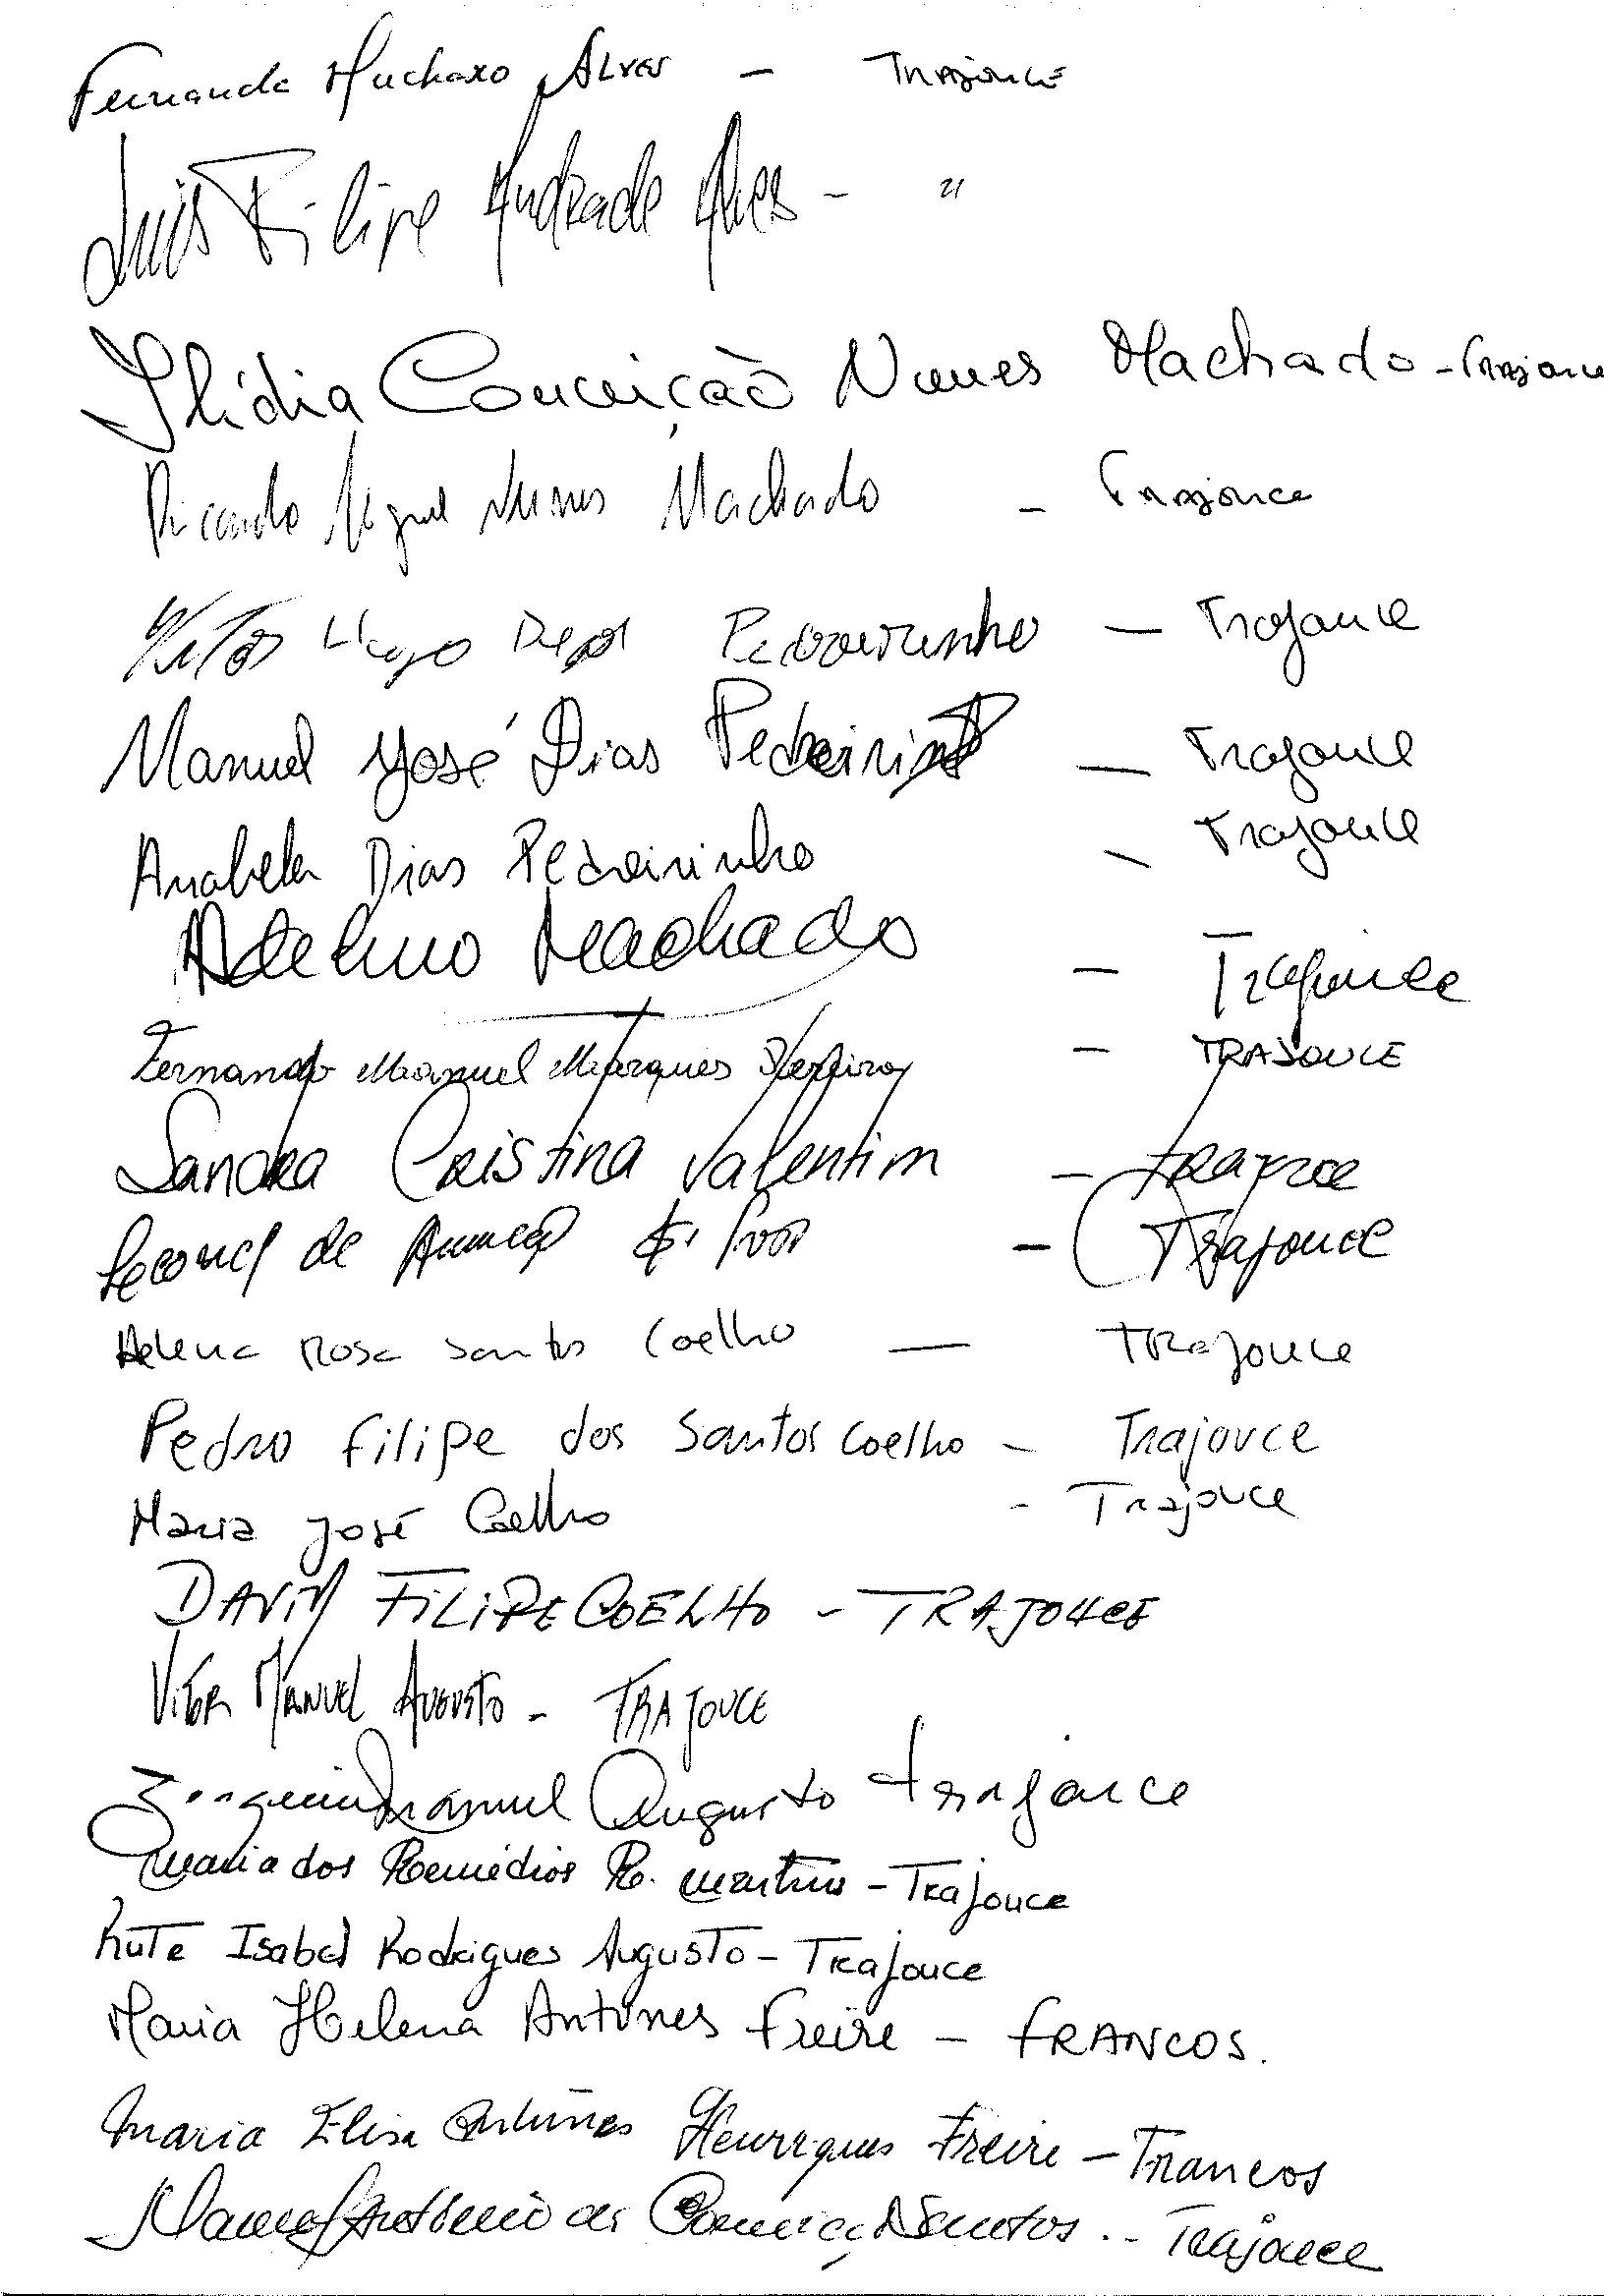 Fernanda Muchaxo Alves - Trajouce
Luis Filipe Andrade Alves - "
Ilídia Conceição Nunes Machado - Trajouce
Ricardo Miguel Nunes Machado - Trajouce
Vitor Hugo Dias Pedreirinho - Trajouce
Manuel José Dias Pedreirinho - Trajouce
Anabela Dias Pedreirinho - Trajouce
Adelino Machado - Trajouce
Fernando Manuel Marques - TRAJOUCE
Sandra Cristina Valentim - Trajouce
de - Trajouce
Helena Rosa Santos Coelho - Trajouce
Pedro Filipe dos Santos Coelho - Trajouce
Maria José Coelho - Trajouce
DAVID FILIPE COELHO - TRAJOUCE
VITOR MANUEL AUGUSTO - TRAJOUCE
Joaquim Manuel Augusto trajouce
Maria dos Remédios R. Martins - Trajouce
Rute Isabel Rodrigues Augusto - Trajouce
Maria Helena Antunes Freire - FRANCOS.
Maria Elisa Antunes Henriques Freire - Francos
Manuel António da Conceição Santos - Trajouce